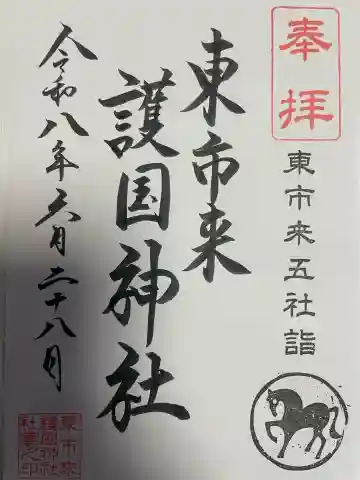 奉拝
東市来五社詣
東市来
護国神社
令和八年六月二十八日
東市来
護國神社
社務之印